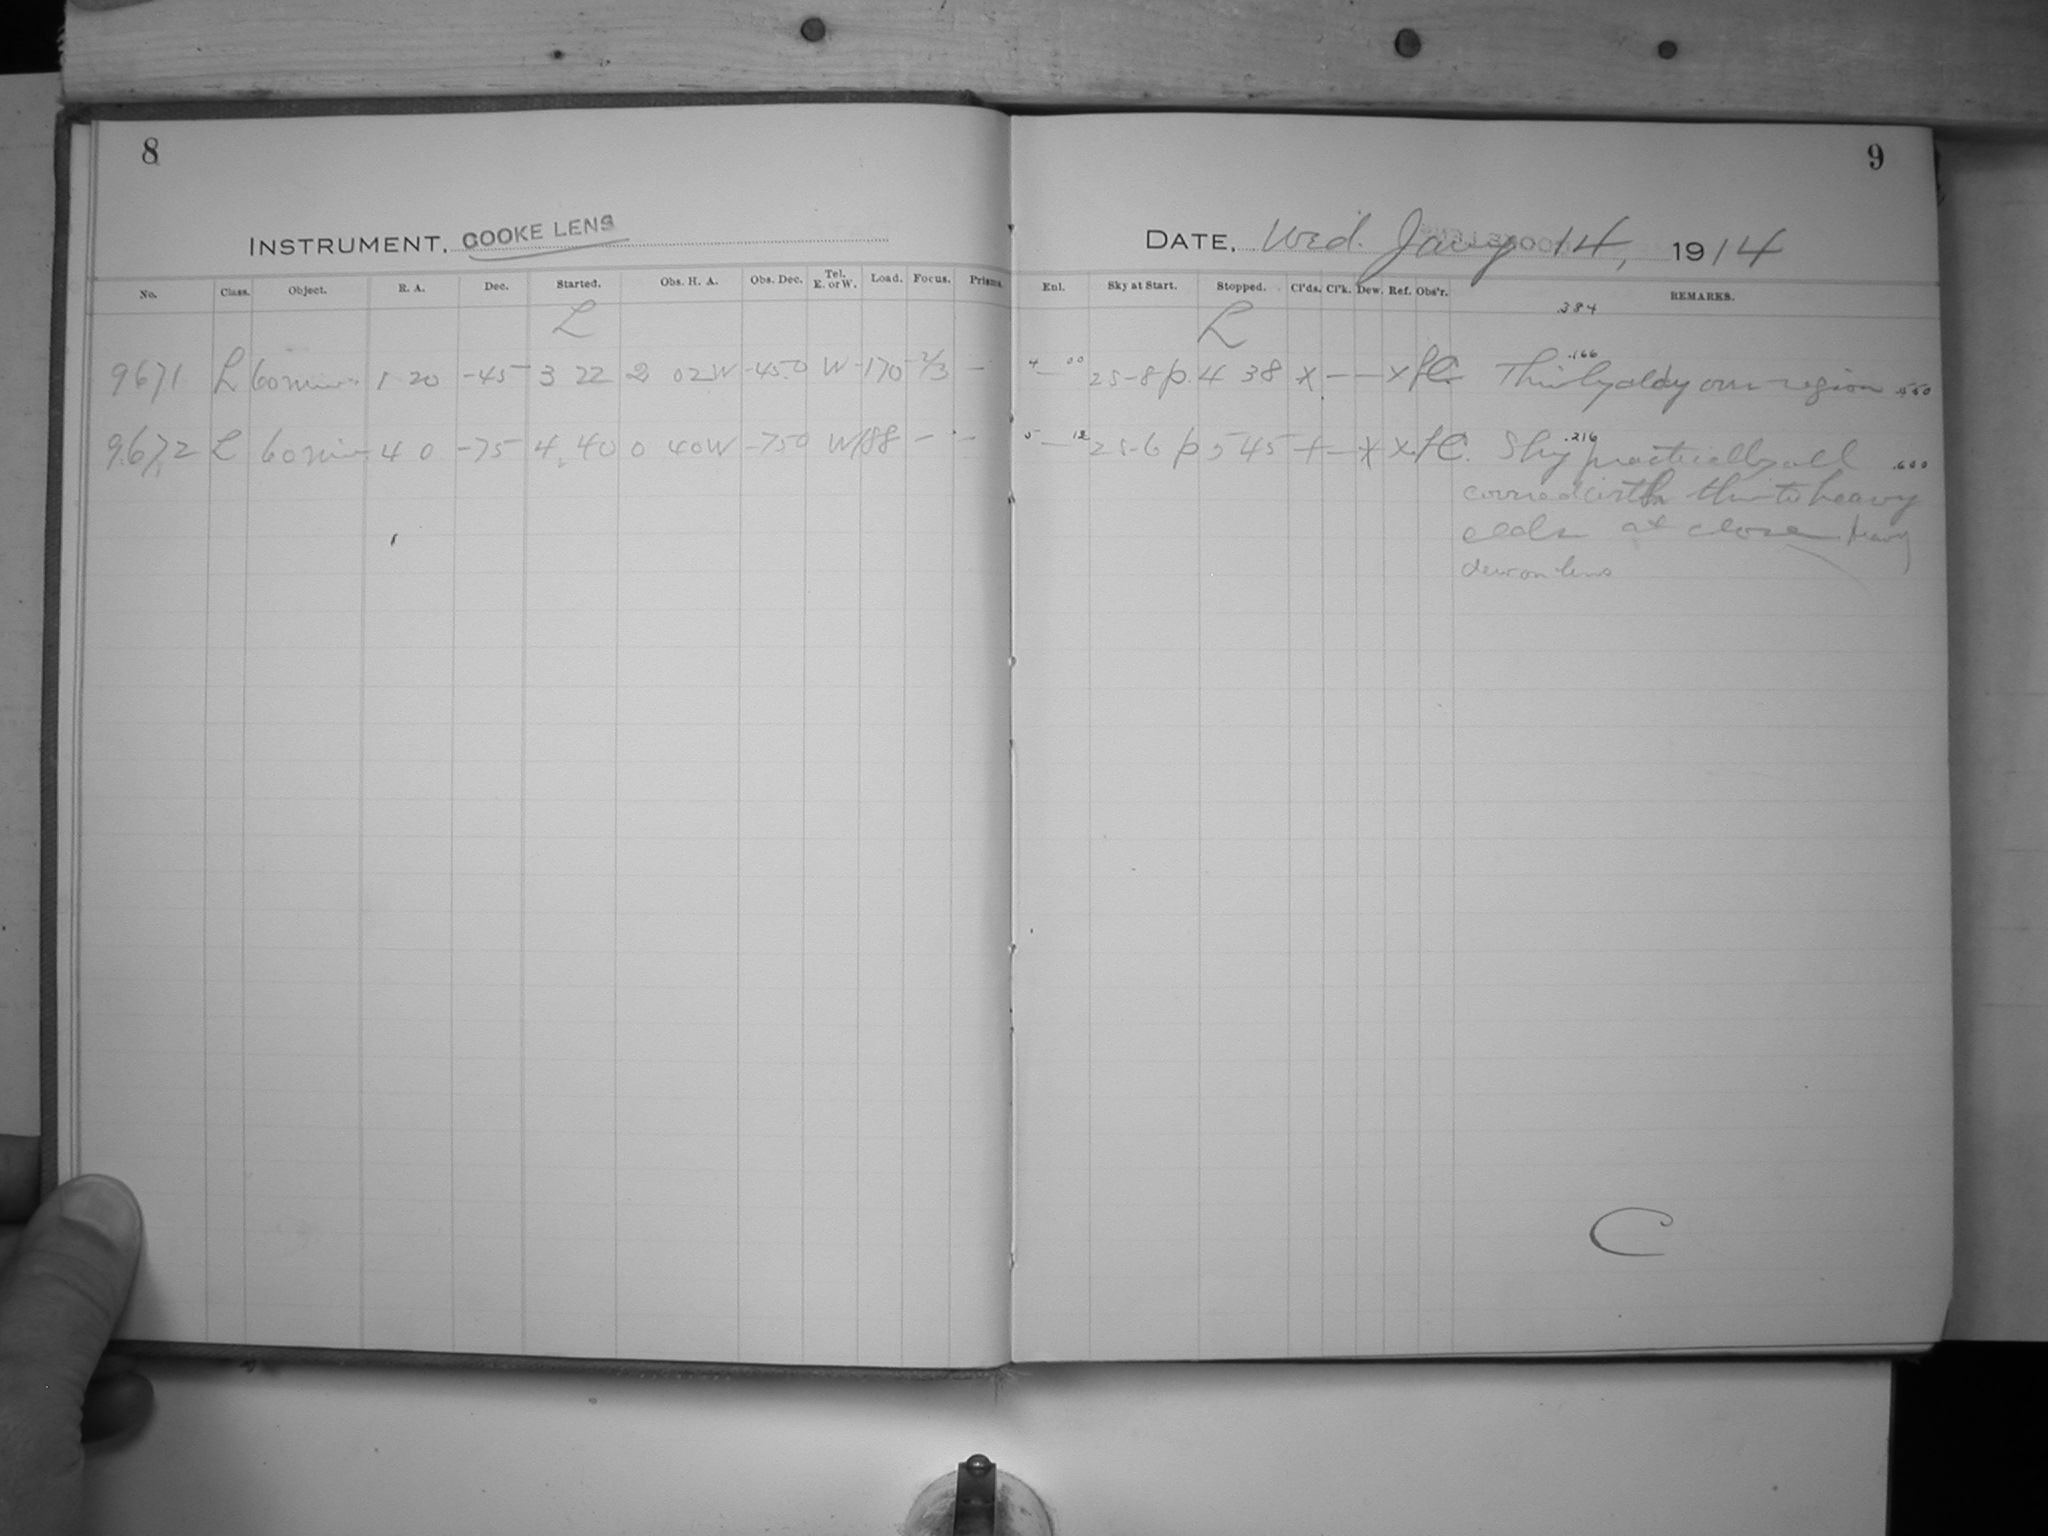 8
INSTRUMENT, COOKE LENS
No. Class. Object. R. A. Dec. Started. Obs. H. A. Obs. Dec. Tel. E. or W. Load. Focus. Prisms.
L
9671 L 60 min 1 20 -45 3 22 2 02W -45.0 W -170 -2/3 —
9672 L 60 min 4 0 -75 4 40 0 40W -750 W 188 — —
9
DATE, Wed. Jany 14, 1914
Enl. Sky at Start. Stopped. Cl'ds. Cl'k. Dew. Ref. Obs'r. REMARKS.
.384
L
.166
4 — 00 25-8 p. 4 38 x — — x fC. Thinly cldy over region .550
.216
5 — 12 25-6 p 5 45 + — x x fC. Sky practically all .600
covered with thin to heavy
clds at close heavy
dew on lens
C